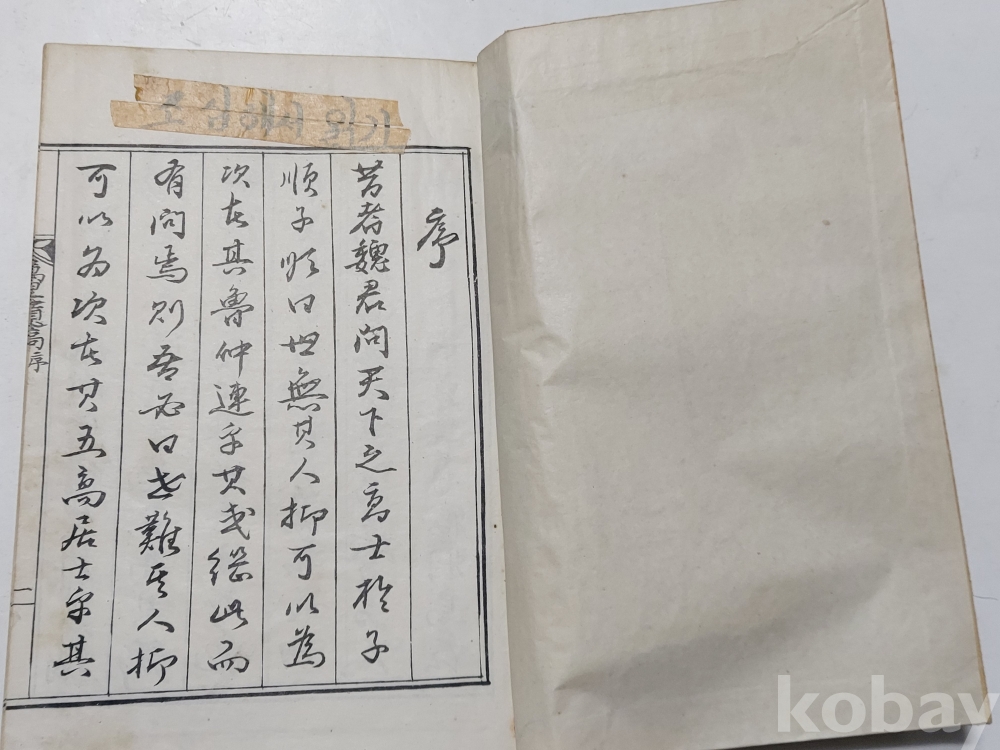 심해서 읽기
序
昔者魏君問天下之高士於子
順子順曰世無其人抑可以爲
次者其魯仲連乎其或繼此而
有問焉則吾必曰世難其人抑
可以為次者其五高居士乎其
序
二
kobay